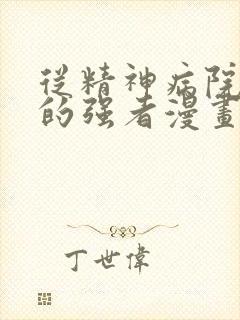 從精神病院
的强者漫畫
丁世偉